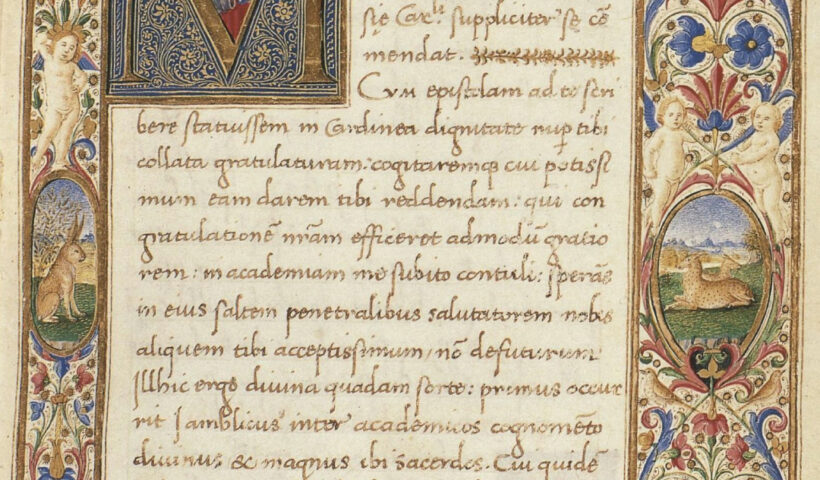 M
sie Car^lis suppliciter se cō
mendat.
Cum epistolam ad te scri
bere statuissem in Cardinea dignitate nup̄ tibi
collata gratulaturam: cogitaremq̨ cui potissi
mum eam darem tibi reddendam: qui con
gratulationē nr̄am efficeret admodū gratio
rem: in academiam me subito contuli: sperās
in eius saltem penetralibus salutatorem nobis
aliquem tibi acceptissimum, nō defuturum
Illhic ergo divina quadam sorte: primus occur
rit Iamblicus inter academicos cognomēto
divinus & magnus ibi sacerdos. Cui quidē